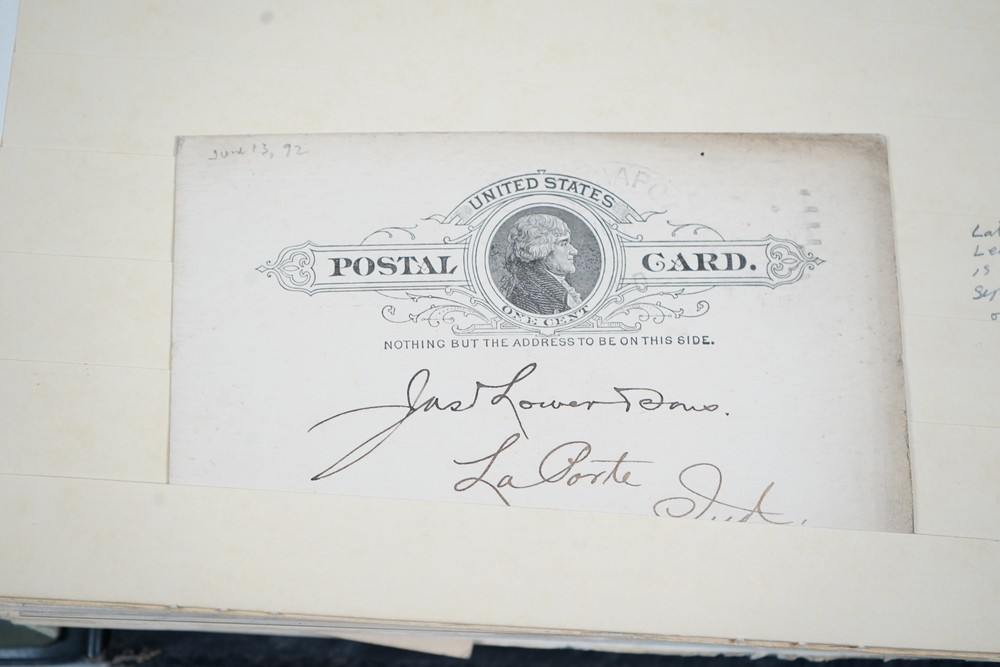 June 13, 92
UNITED STATES
POSTAL CARD.
ONE CENT
NOTHING BUT THE ADDRESS TO BE ON THIS SIDE.
Jas Lower & Sons.
La Porte
Ind.
APO
is